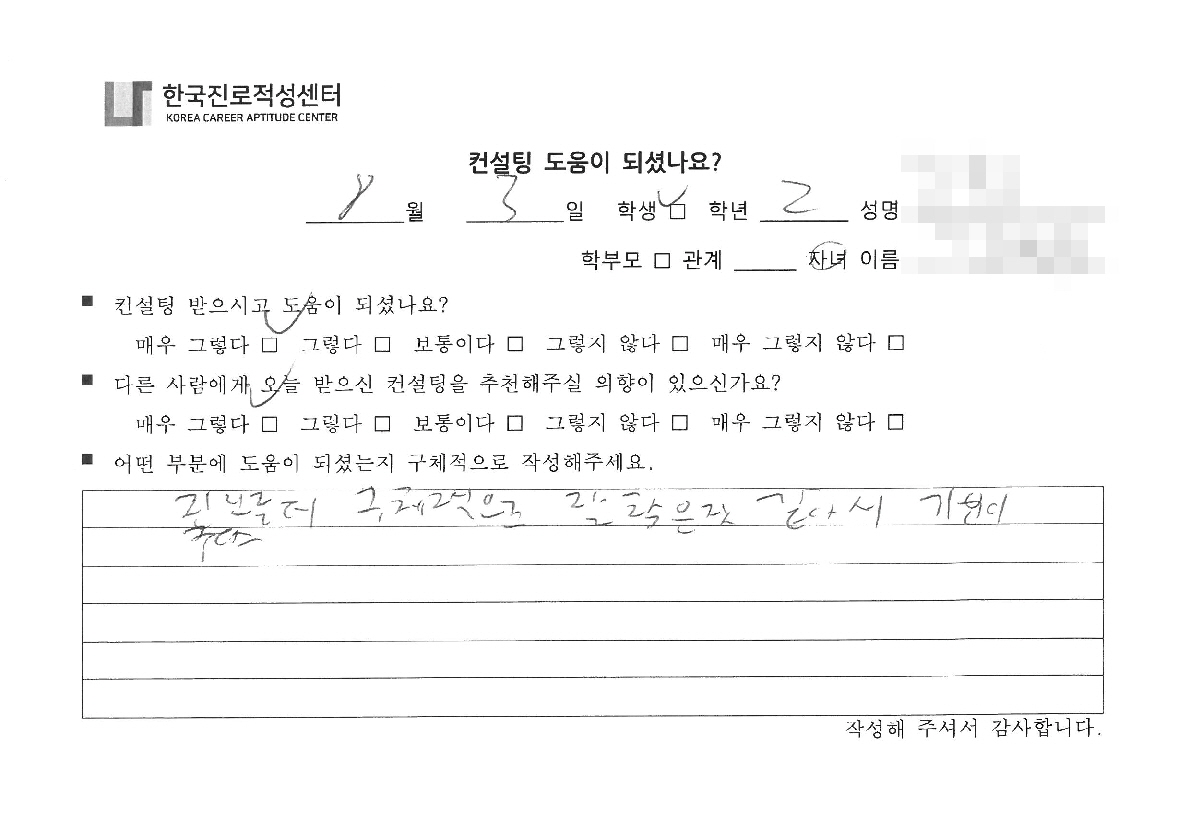 한국진로적성센터
KOREA CAREER APTITUDE CENTER
컨설팅 도움이 되셨나요?
8 월 3 일 학생 □ 학년 2 성명
학부모 □ 관계 자녀 이름
■ 컨설팅 받으시고 도움이 되셨나요?
매우 그렇다 □ 그렇다 □ 보통이다 □ 그렇지 않다 □ 매우 그렇지 않다 □
■ 다른 사람에게 오늘 받으신 컨설팅을 추천해주실 의향이 있으신가요?
매우 그렇다 □ 그렇다 □ 보통이다 □ 그렇지 않다 □ 매우 그렇지 않다 □
■ 어떤 부분에 도움이 되셨는지 구체적으로 작성해주세요.
진로를 더 구체적으로 같아서 기분이
작성해 주셔서 감사합니다.